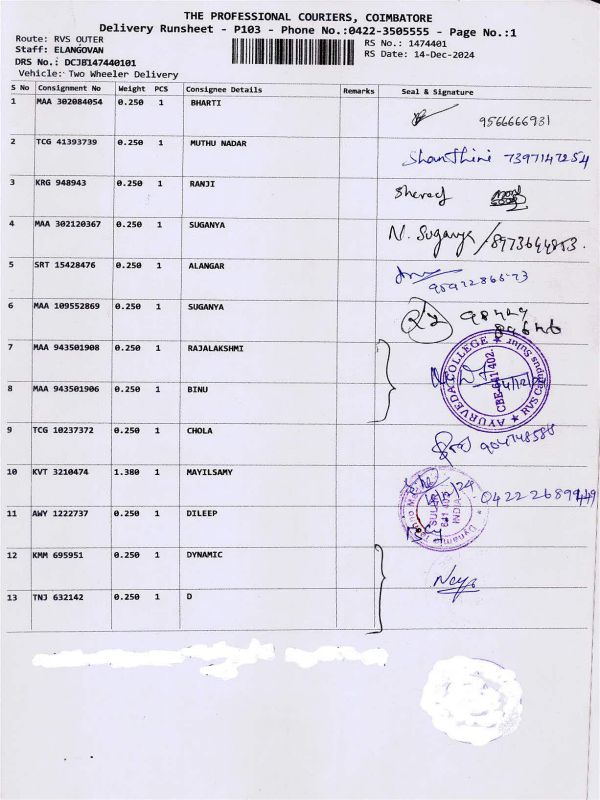 THE PROFESSIONAL COURIERS, COIMBATORE
Delivery Runsheet - P103 - Phone No.:0422-3505555 - Page No.:1
Route: RVS OUTER
RS No.: 1474401
Staff: ELANGOVAN
RS Date: 14-Dec-2024
DRS No.: DCJB147440101
Vehicle: Two Wheeler Delivery
S No Consignment No Weight PCS Consignee Details Remarks Seal & Signature
1 MAA 302084054 0.250 1 BHARTI
9566666931
2 TCG 41393739 0.250 1 MUTHU NADAR
Shanthini 7397147254
3 KRG 948943 0.250 1 RANJI
4 MAA 302120367 0.250 1 SUGANYA
N. Suganya / 8973644853.
5 SRT 15428476 0.250 1 ALANGAR
6 MAA 109552869 0.250 1 SUGANYA
7 MAA 943501908 0.250 1 RAJALAKSHMI
AYURVEDA COLLEGE ★ RVS Campus Sulur ★
CBE-641 402
8 MAA 943501906 0.250 1 BINU
9 TCG 10237372 0.250 1 CHOLA
10 KVT 3210474 1.380 1 MAYILSAMY
0422 2689949
INDIA
11 AWY 1222737 0.250 1 DILEEP
12 KMM 695951 0.250 1 DYNAMIC
13 TNJ 632142 0.250 1 D